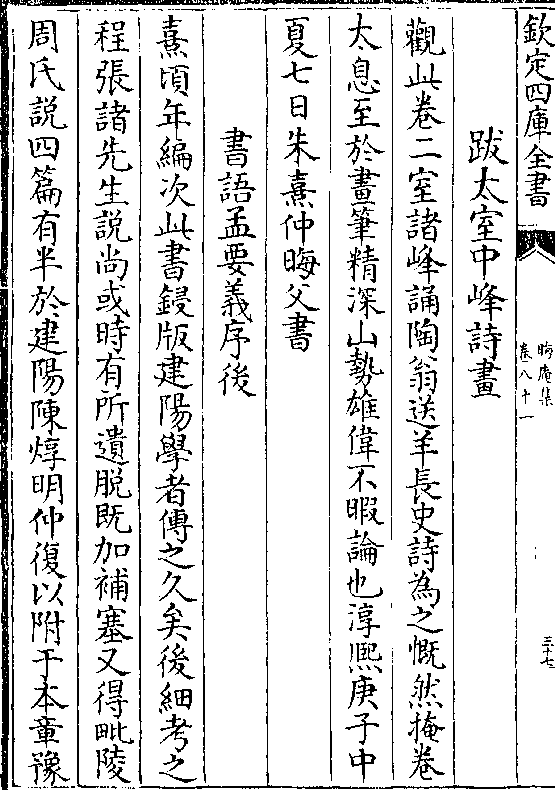 欽定四庫全書
晦庵集
卷八十一
三十七
跋太室中峰詩畫
觀此卷二室諸峰誦陶翁送羊長史詩為之慨然掩卷
太息至於畫筆精深山勢雄偉不暇論也淳熙庚子中
夏七日朱熹仲晦父書
書語孟要義序後
熹頃年編次此書鋟版建陽學者傳之久矣後細考之
程張諸先生說尚或時有所遺脫既加補塞又得毗陵
周氏説四篇有半於建陽陳焞明仲復以附于本章豫